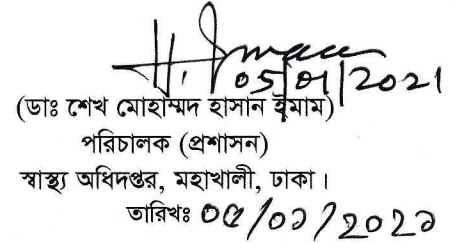 05/01/2021
(ডাঃ শেখ মোহাম্মদ হাসান ইমাম)
পরিচালক (প্রশাসন)
স্বাস্থ্য অধিদপ্তর, মহাখালী, ঢাকা।
তারিখঃ ০৫/০১/২০২১